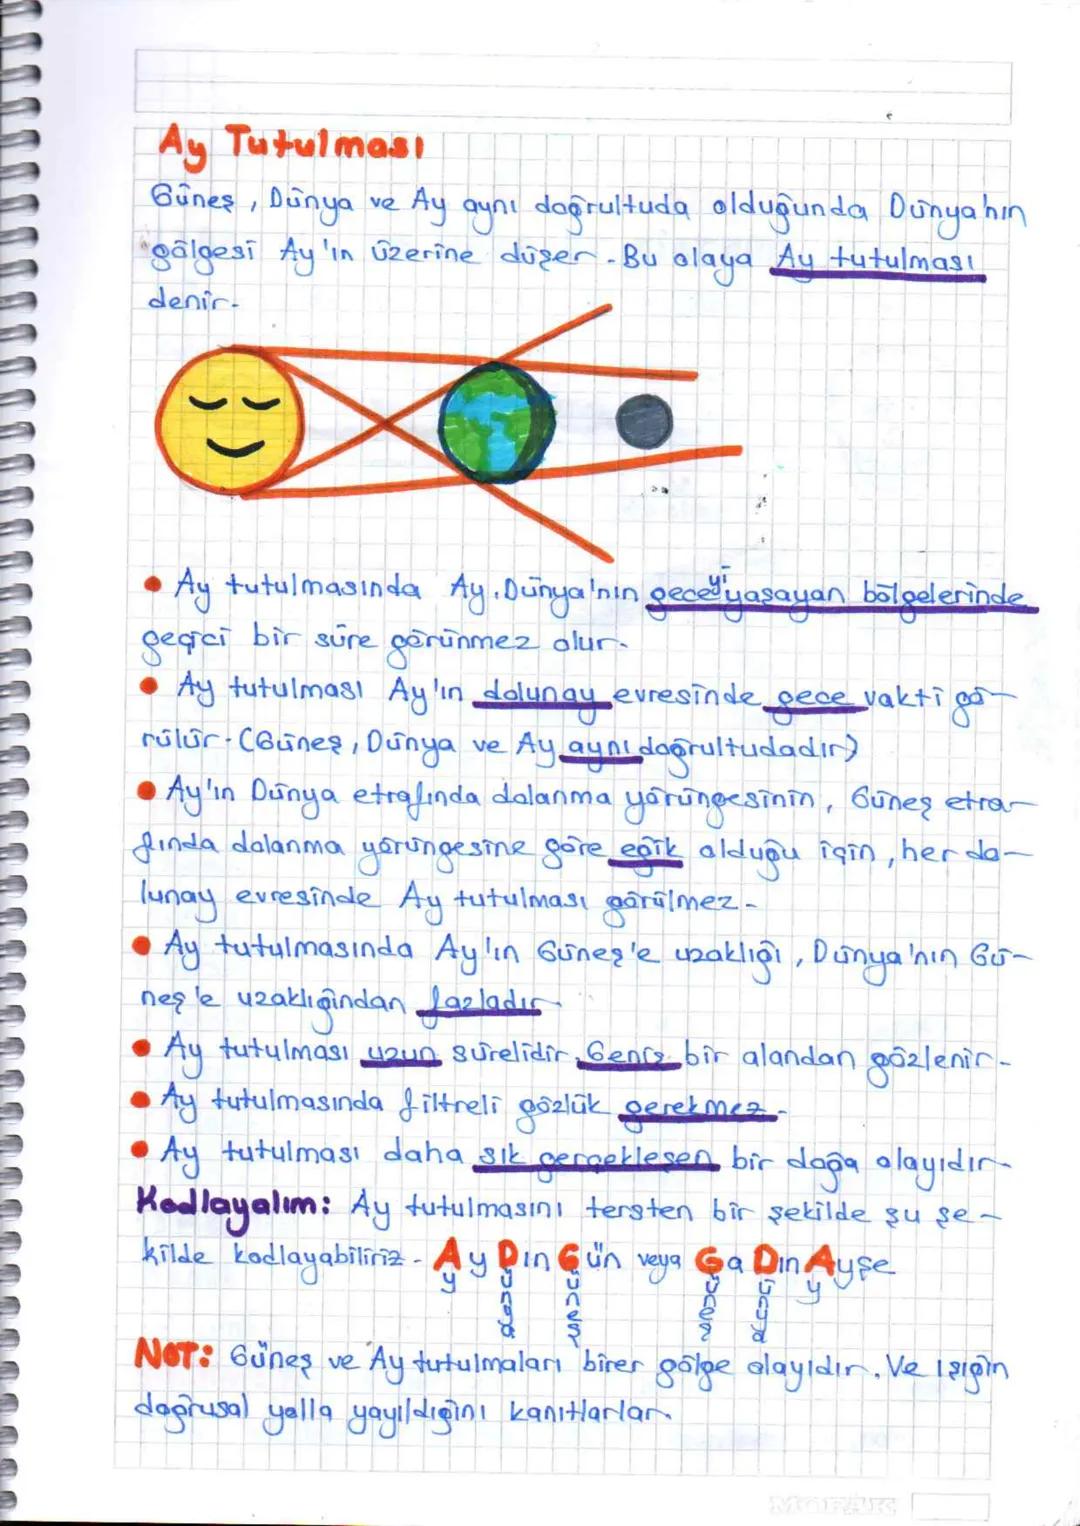 Ay Tutulması
Güneş, Dünya ve Ay aynı doğrultuda olduğunda Dünya'nın
gölgesi Ay'ın üzerine düşer. Bu olaya Ay tutulması
denir.
• Ay tutulmasında Ay, Dünya'nın geceyi yaşayan bölgelerinde
geçici bir süre görünmez olur.
• Ay tutulması Ay'ın dolunay evresinde gece vakti gö-
rülür. (Güneş, Dünya ve Ay aynı doğrultudadır)
• Ay'ın Dünya etrafında dolanma yörüngesinin, Güneş etra-
fında dolanma yörüngesine göre eğik olduğu için, her do-
lunay evresinde Ay tutulması görülmez.
• Ay tutulmasında Ay'ın Güneş'e uzaklığı, Dünya'nın Gü-
neş'e uzaklığından fazladır.
• Ay tutulması uzun sürelidir. Geniş bir alandan gözlenir.
• Ay tutulmasında filtreli gözlük gerekmez.
• Ay tutulması daha sık gerçekleşen bir doğa olayıdır.
Kodlayalım: Ay tutulmasını tersten bir şekilde şu şe-
kilde kodlayabiliriz. Ay Dın Gün veya Ga Dın Ayşe
Ay Dünya Güneş Güneş Dünya Ay
NOT: Güneş ve Ay tutulmaları birer gölge olayıdır. Ve ışığın
doğrusal yolla yayıldığını kanıtlarlar.